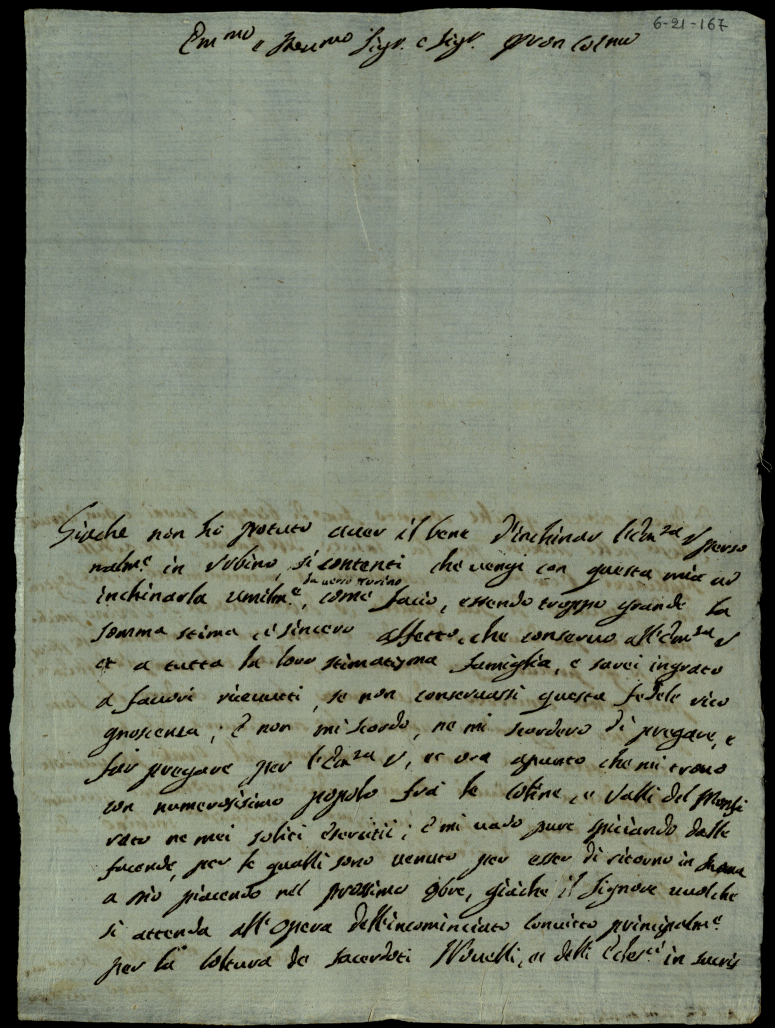 6-21-167
Em.mo e Reu.mo Sig.r e Sig.r Pron Colmo
Giache non hò potuto auer il bene d'inchinar l'Em.za V perso
nalm.e in Vrbino, si contenti che vengi con questa mia ad
da uerso Torino
inchinarla umilm.e, come faccio, essendo troppo grande la
somma stima, e sincero affetto, che conseruo all'Em.za V
et a tutta la loro stimatis.ma famiglia, e sarei ingrato
a fauori riceuuti, se non conseruassi questa fedele rico
gnoscenza; E non mi scordo, ne mi scorderò di pregare, e
far pregare per l'Em.za V, et ora apunto che mi trouo
con numerosissimo popolo frà le coline, e Valli del Monfe
rato ne miei soliti esercitii; E mi uado pure spiciando dalle
facende, per le qualli sono uenuto per esser di ritorno in Roma
a Dio piacendo nel prossimo 9bre, giache il Signore uuol che
si attenda all'opera dell'incominciato conuitto principalm.e
per la coltura de sacerdoti Nouelli, e delli Chier.ci in sacris